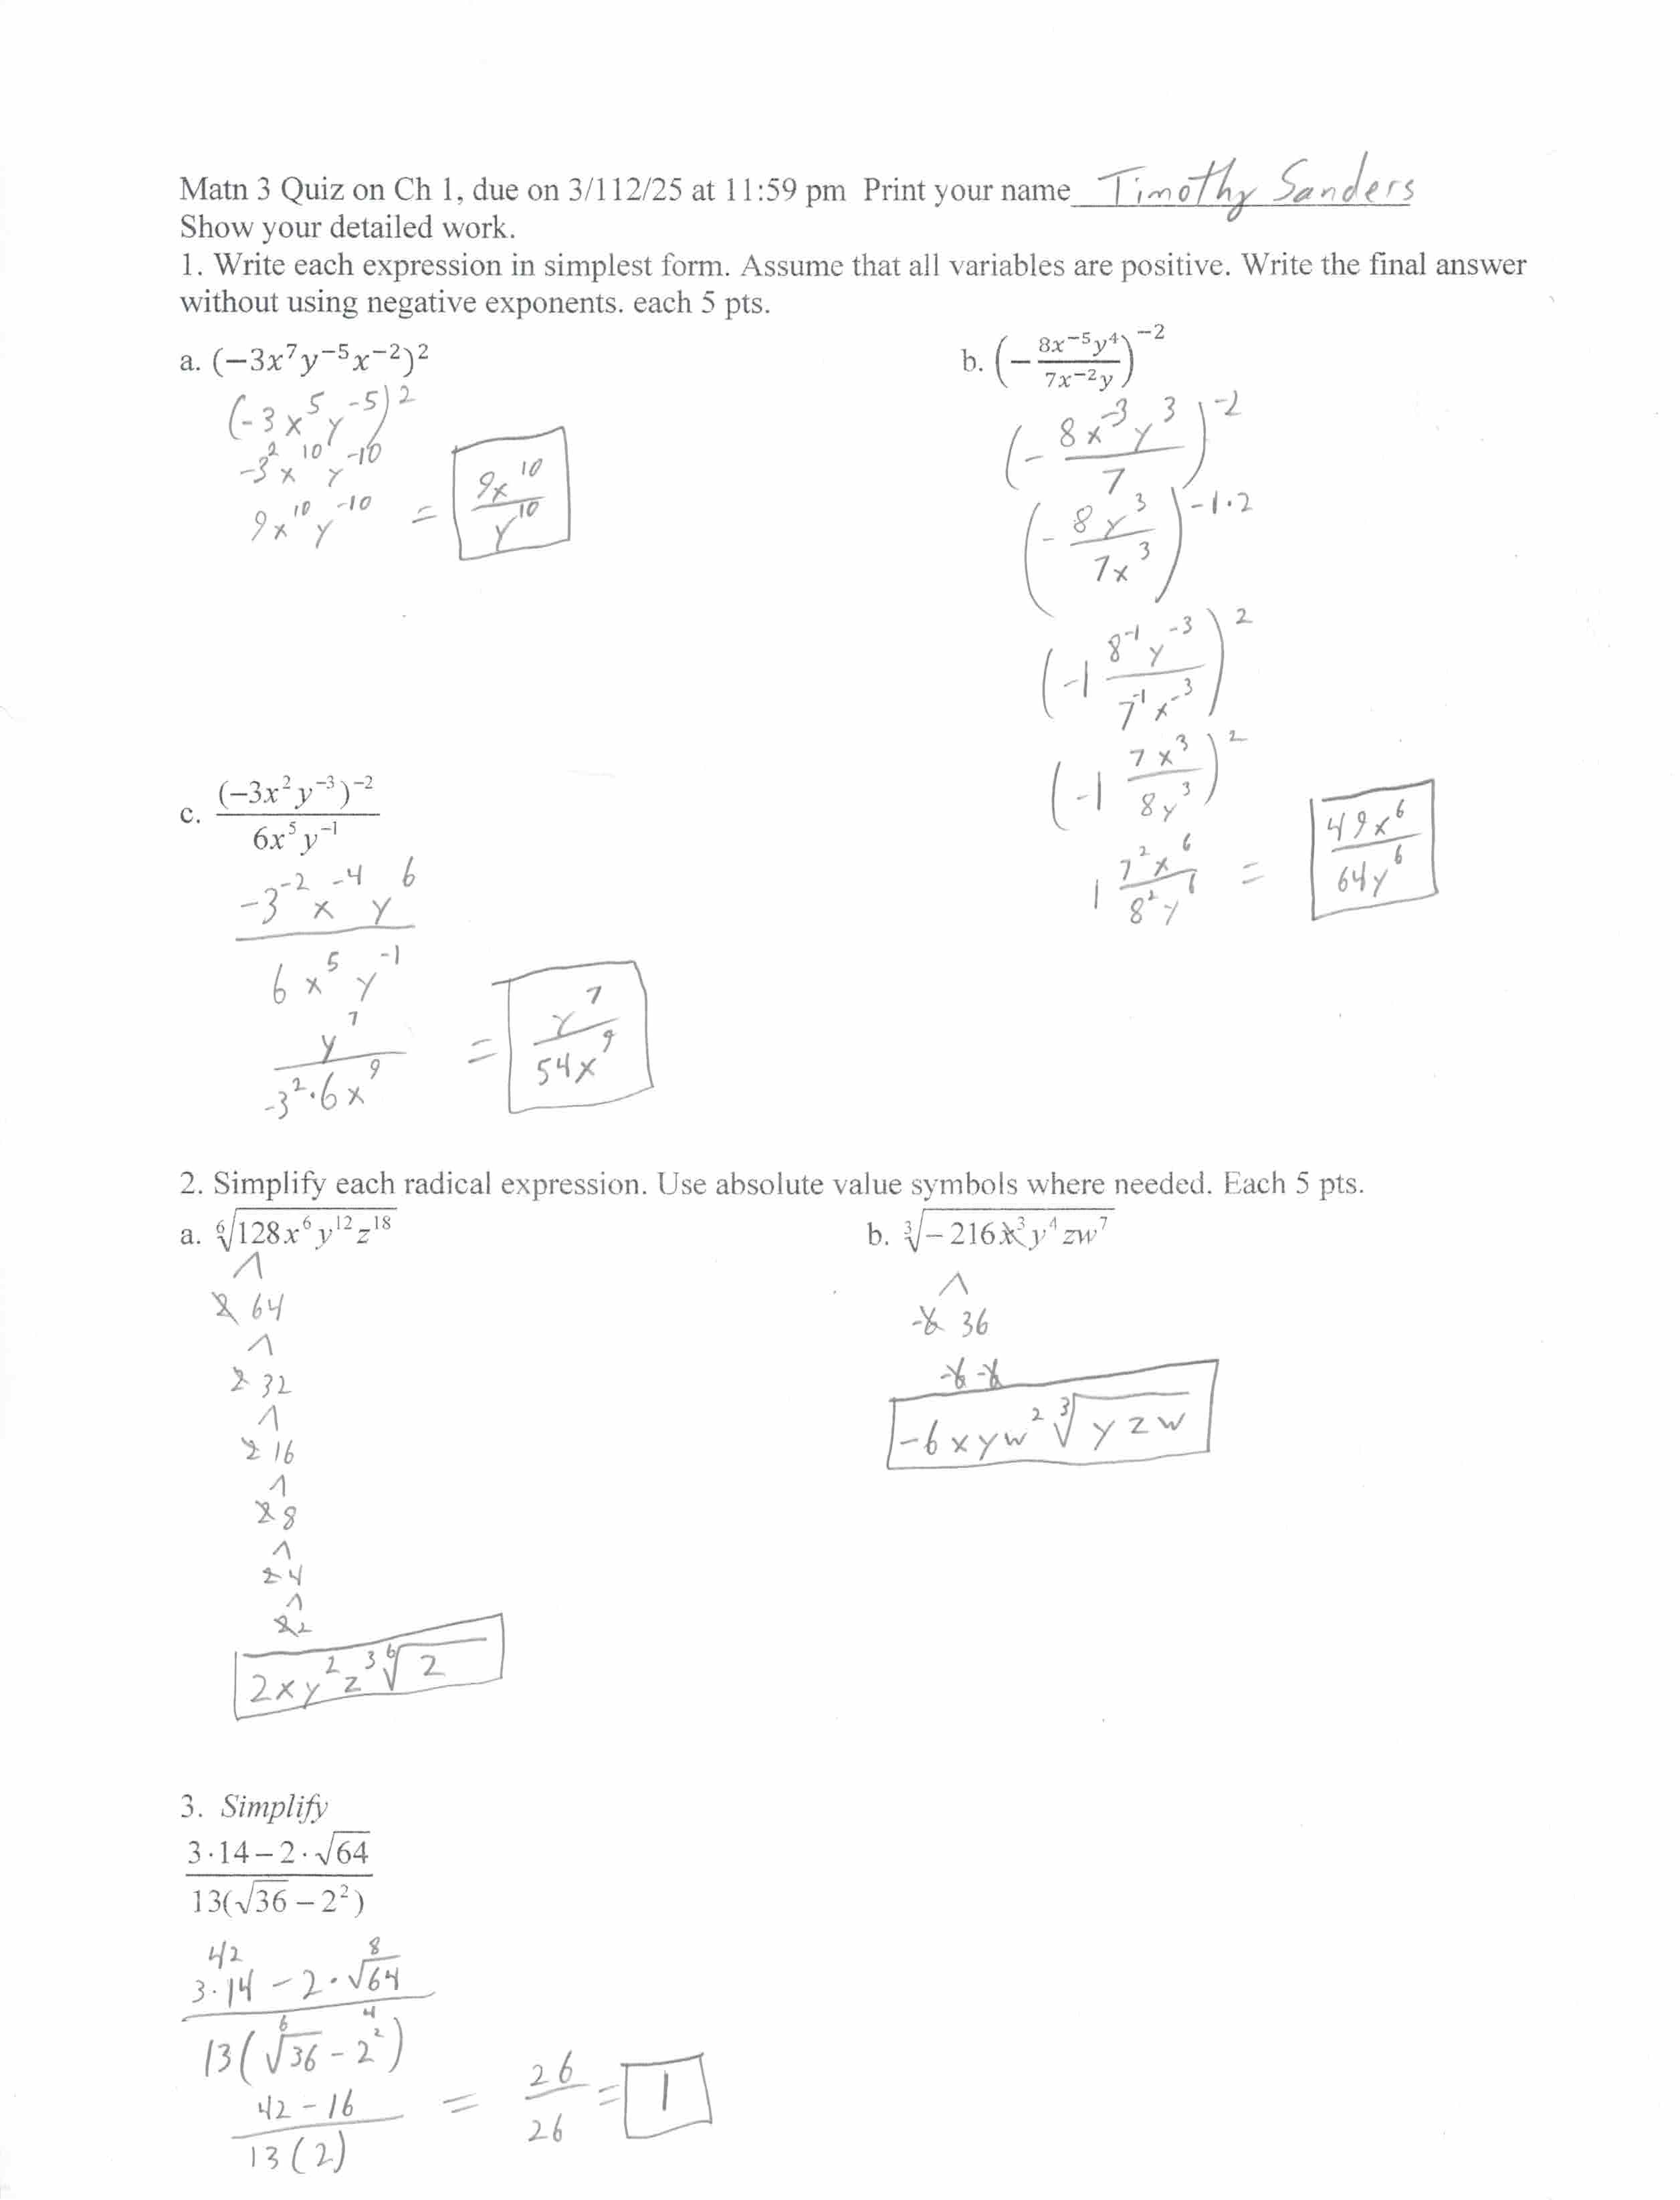 Matn 3 Quiz on Ch 1, due on 3/112/25 at 11:59 pm Print your name Timothy Sanders
Show your detailed work.
1. Write each expression in simplest form. Assume that all variables are positive. Write the final answer
without using negative exponents. each 5 pts.
a. (−3x⁷y⁻⁵x⁻²)²
(-3x⁵y⁻⁵)²
-3²x¹⁰y⁻¹⁰
9x¹⁰y⁻¹⁰ = 9x¹⁰/y¹⁰
b. (− 8x⁻⁵y⁴/7x⁻²y)⁻²
(- 8x⁻³y³/7)⁻²
(- 8y³/7x³)⁻¹·²
(-1 8⁻¹y⁻³/7⁻¹x⁻³)²
(-1 7x³/8y³)²
1 7²x⁶/8²y⁶ = 49x⁶/64y⁶
c. (−3x²y⁻³)⁻²/6x⁵y⁻¹
-3⁻²x⁻⁴y⁶/6x⁵y⁻¹
y⁷/-3²·6x⁹ = y⁷/54x⁹
2. Simplify each radical expression. Use absolute value symbols where needed. Each 5 pts.
a. ⁶√128x⁶y¹²z¹⁸
2 64
2 32
2 16
2 8
2 4
2 2
2xy²z³ ⁶√2
b. ³√−216x³y⁴zw⁷
-6 36
-6 -6
-6xyw² ³√yzw
3. Simplify
3·14−2·√64
13(√36−2²)
42 8
3·14 - 2·√64
6 4
13(√36 - 2²)
42-16/13(2) = 26/26 = 1